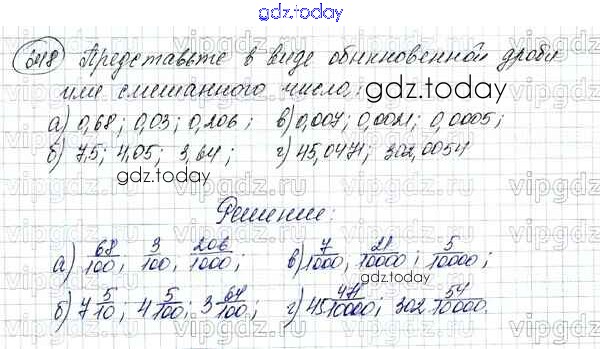 gdz.today
848 Представьте в виде обыкновенной дроби
или смешанного числа:
gdz.today
а) 0,68; 0,03; 0,206; в) 0,007; 0,0021; 0,0005;
б) 7,5; 4,05; 3,64; г) 45,0471; 302,0054
gdz.today
Решение:
а) 68/100, 3/100, 206/1000; в) 7/1000, 21/10000; 5/10000;
gdz.today
б) 7 5/10; 4 5/100; 3 64/100; г) 45 471/10000; 302 54/10000.
vipgdz.ru